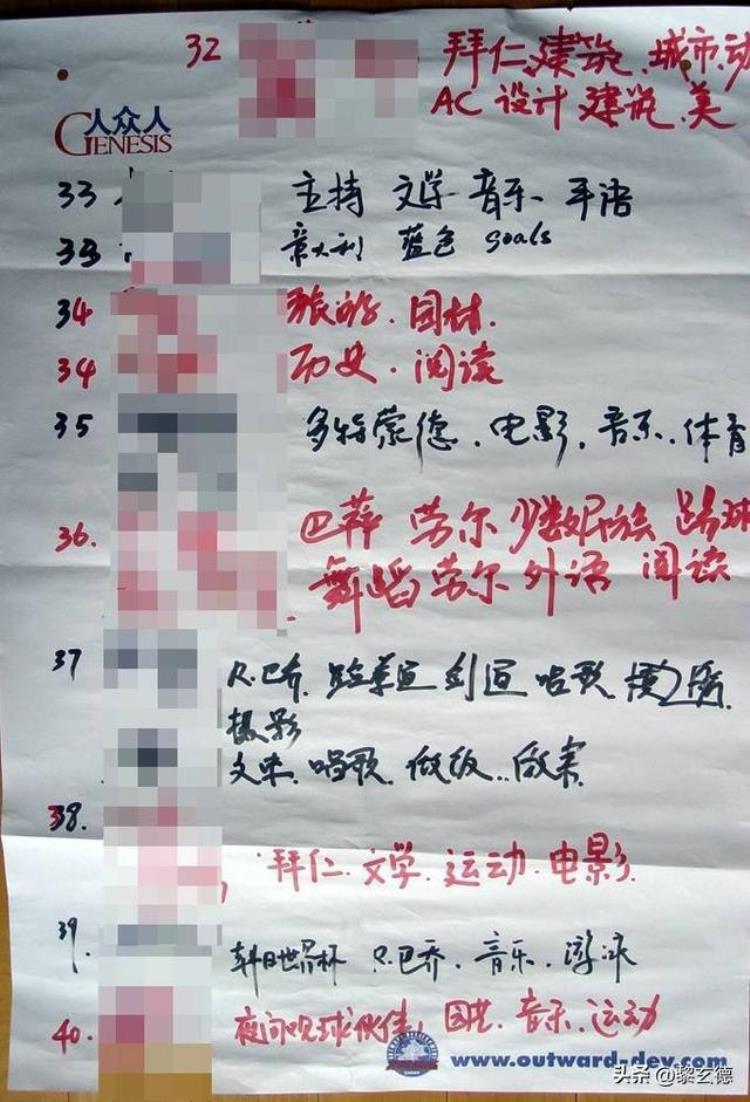 32 拜仁.建筑.城市.动
AC 设计 建筑.美
人众人
GENESIS
33 主持 文学 音乐 手语
33 意大利 蓝色 goals
34 旅游.园林.
34 历史.阅读
35 多特蒙德.电影.音乐.体育
36. 巴萨 劳尔 少数民族 踢球
舞蹈 劳尔 外语 阅读
37 R.巴乔. 跆拳道 剑道 唱歌
摄影
文味. 唱歌. 做饭..
38. 拜仁.文学.运动.电影.
39. 韩日世界杯 R.巴乔.音乐.游泳
40. 夜间观球伙伴, 园艺.音乐.运动
www.outward-dev.com
头条 @黎玄德